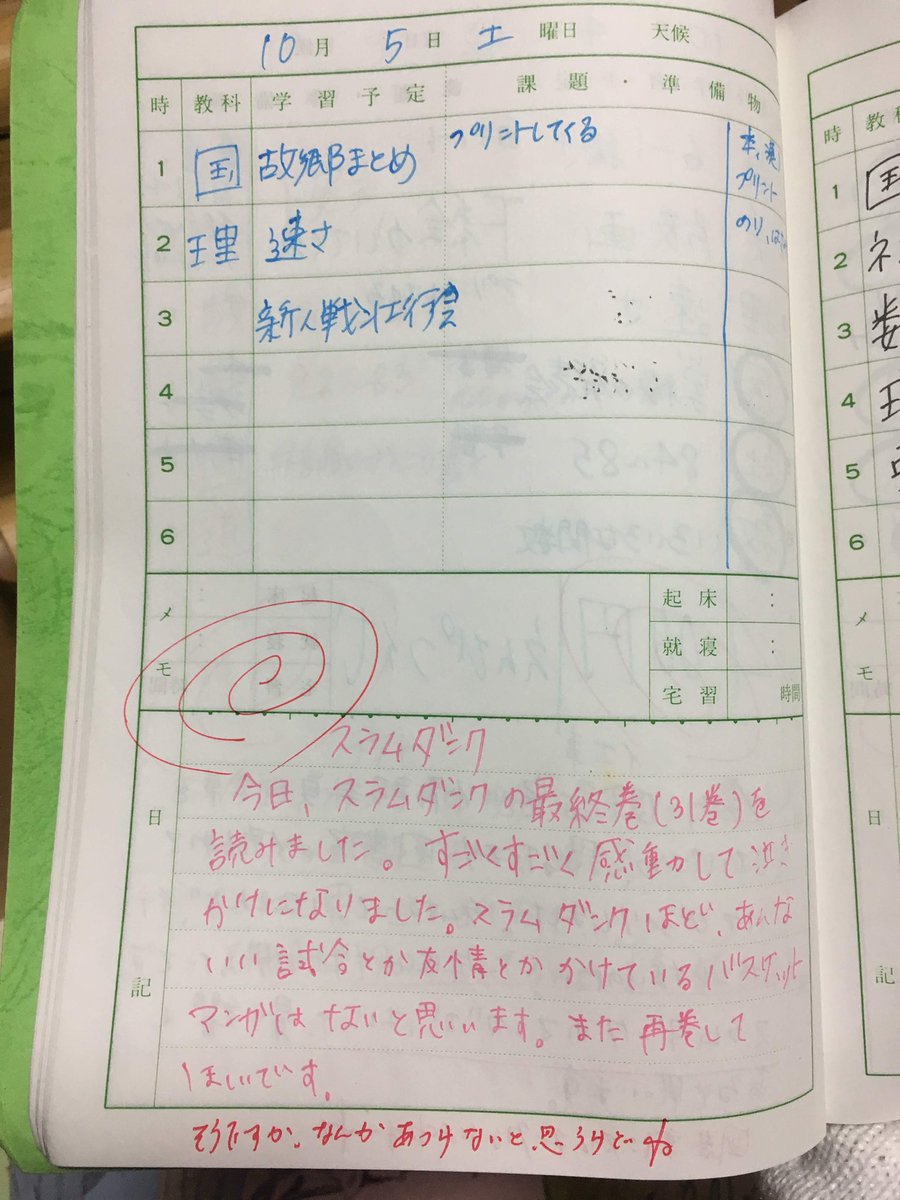 10月 5日 土 曜日 天候
時 教科 学習予定 課題・準備物
1 国 故郷まとめ プリントしてくる 本、漢
プリント
2 理 速さ のり、は
3 新人戦壮行会
4
5
6
メモ
起床 :
就寝 :
宅習 時間
日記
スラムダンク
今日、スラムダンクの最終巻(31巻)を
読みました。すごくすごく感動して泣き
かけになりました。スラムダンクほど、あんな
いい試合とか友情とかかけているバスケット
マンガはないと思います。また再巻して
ほしいです。
そうですか。なんかあつけないと思うけどね
時 教科
1 国
2
3
4
5
6
メモ
日記